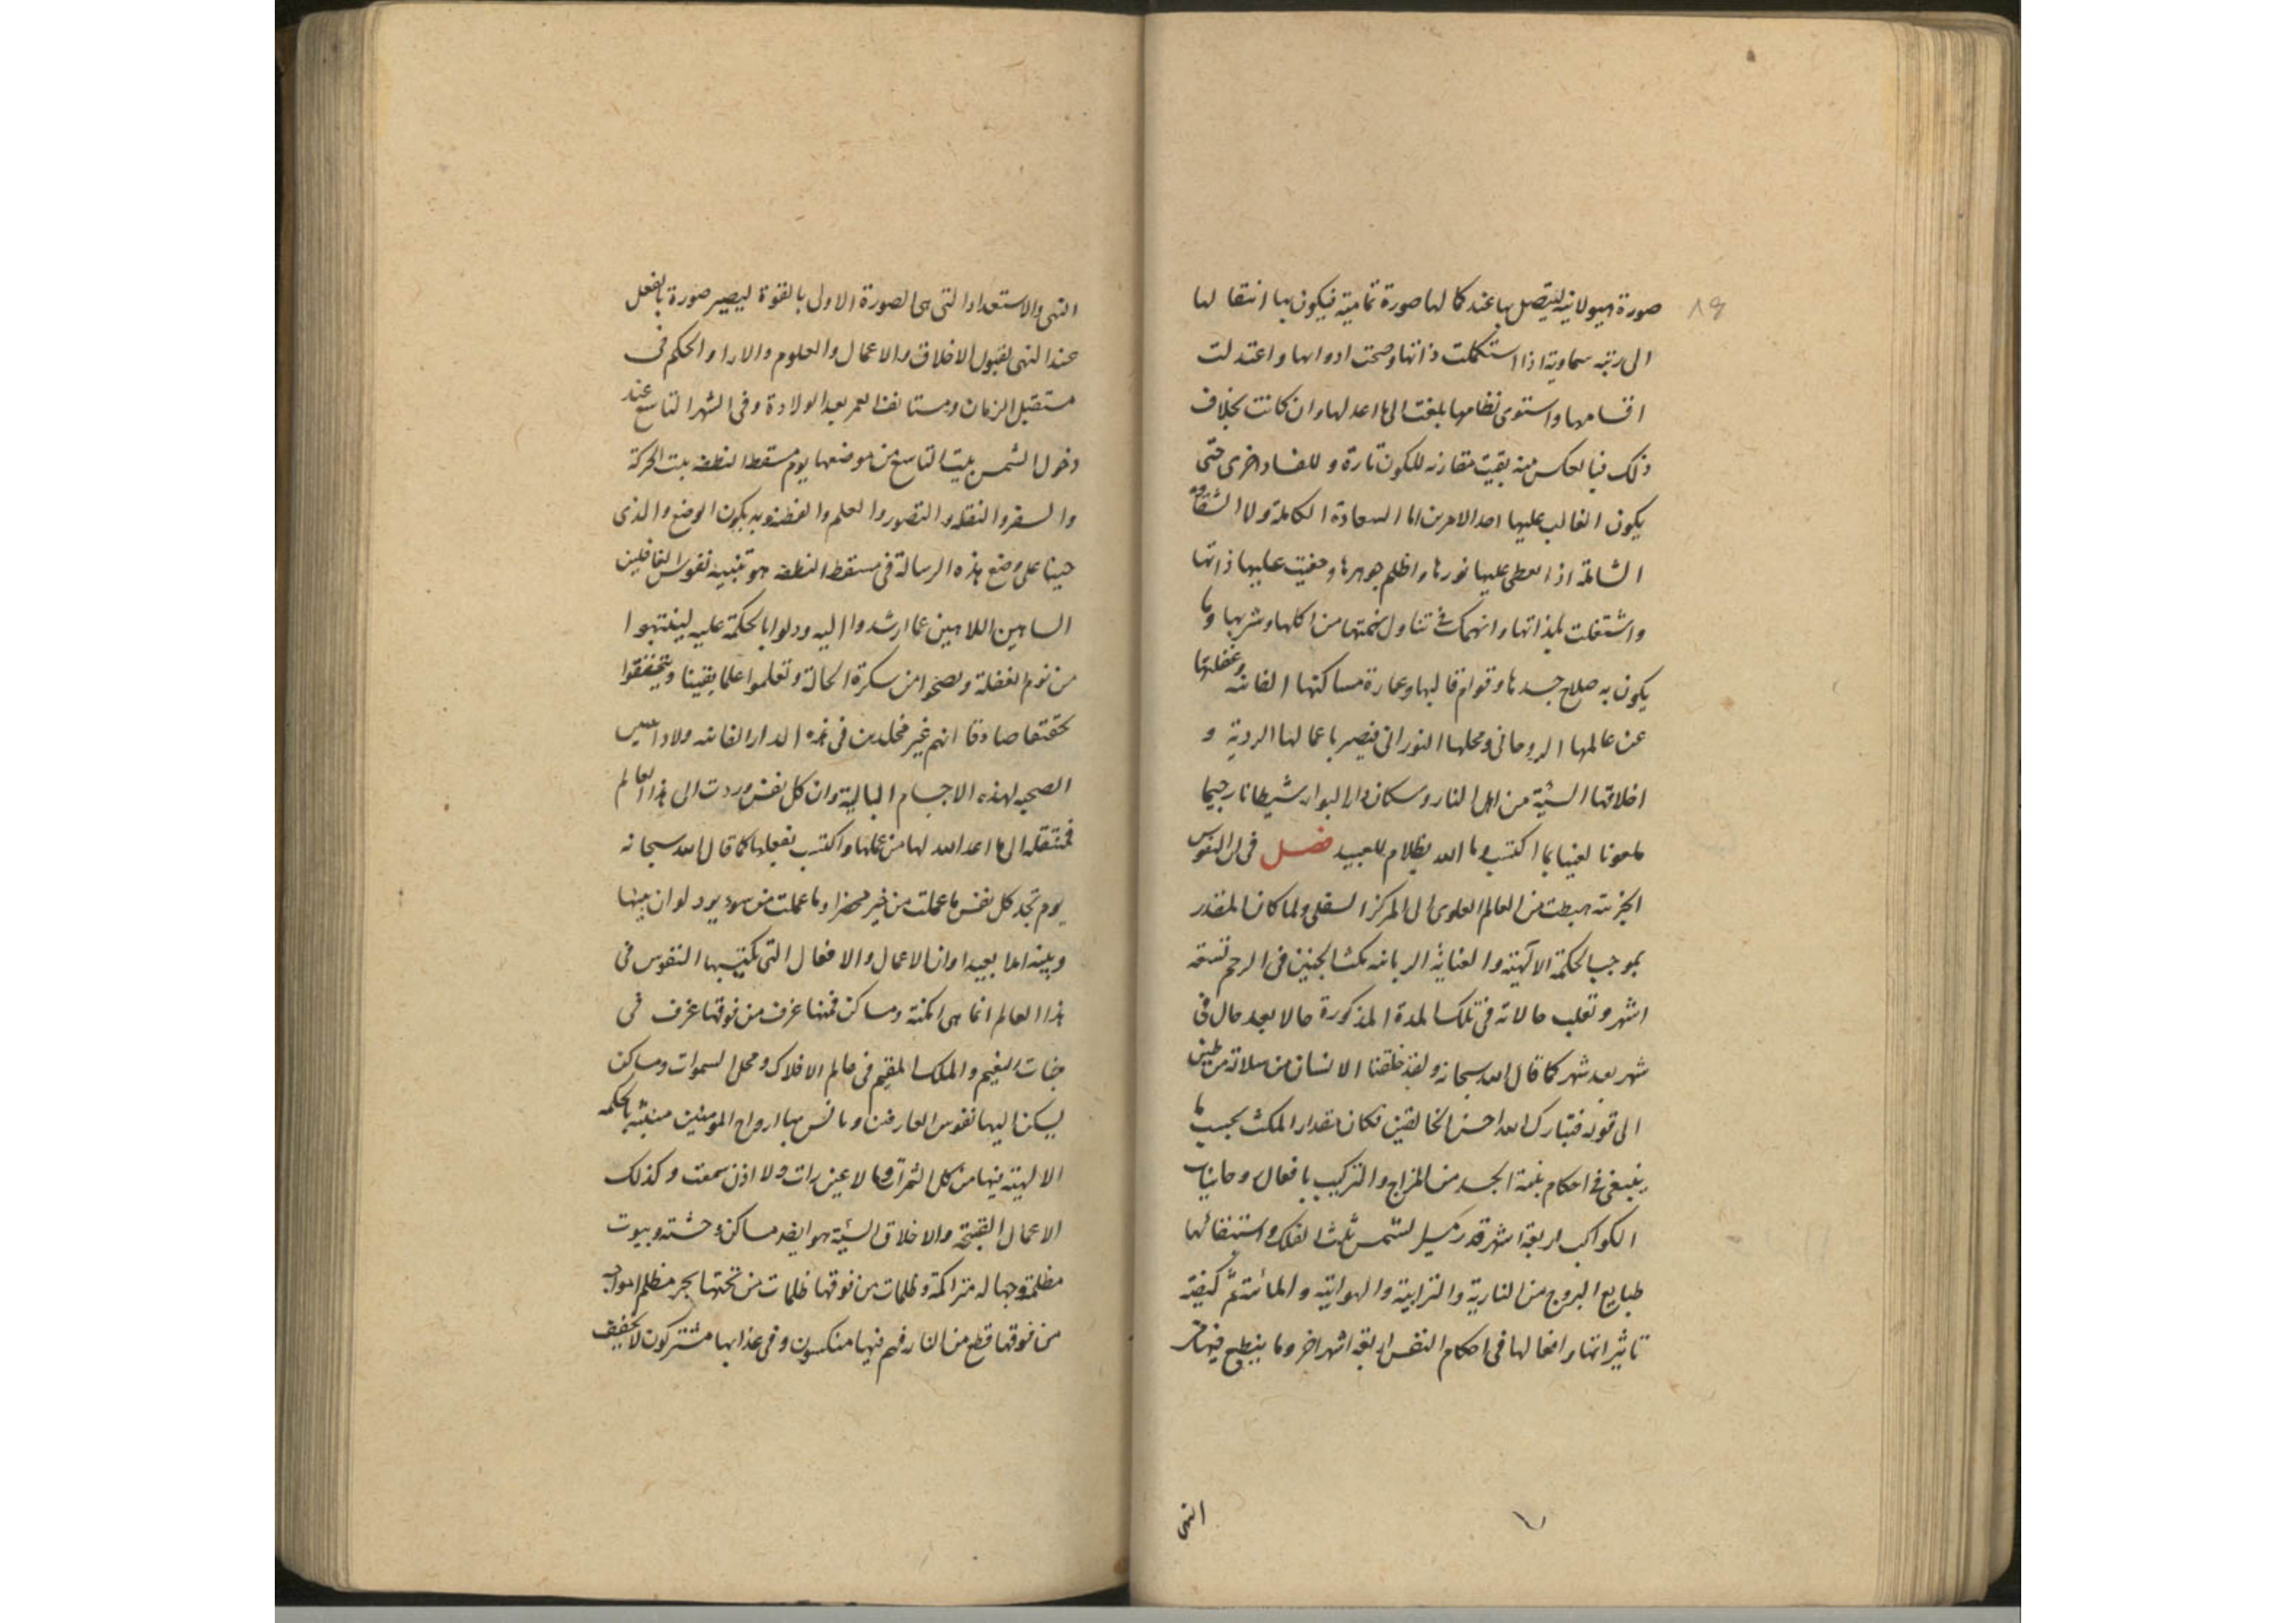 صورة هيولانية ليتصل بها عند كمالها صورة تمامية فيكون بها انتقالها
الى رتبه سماوية اذا استكملت ذاتها وصحت ادواتها واعتدلت
اقسامها واستوى نظامها بلغت الى ما اعد لها وان كانت بخلاف
ذلك فبالعكس منه بقيت مقارنه للكون تارة وللفساد اخرى حتى
يكون الغالب عليها احد الامرين اما السعادة الكاملة ولا الشقاوة
الشاملة اذا انعطى عليها نورها واظلم جوهرها وخفيت عليها ذاتها
واشتغلت بلذاتها وانهمكت فى تناول من اكلها وشربها وما
يكون به صلاح جسدها وقوام قالبها وعمارة مساكنها الفانيه وغفلتها
عن عالمها الروحانى ومحلها النورانى فتصير باعمالها الردية و
اخلاقها السيئة من اهل النار وسكان دار البوار شيطانا رجيما
ملعونا لعينا بما اكتسب وما الله بظلام للعبيد فصل فى ان النفوس
الجزئيه هبطت من العالم العلوى الى المركز السفلى ولما كان المقدر
بموجب الحكمة الالهية والعناية الربانيه مكث الجنين فى الرحم تسعة
اشهر وتقلب حالاته فى تلك المدة المذكورة حالا بعد حال فى
شهر بعد شهر كما قال الله سبحانه ولقد خلقنا الانسان من سلالة من طين
الى قوله فتبارك الله احسن الخالقين فكان مقدار المكث بحسب ما
ينبغى فى احكام بنية الجسد من المزاج والتركيب بافعال روحانيات
الكواكب اربعة اشهر قدر مسير الشمس ثلث الفلك واستيفائها
طبايع البروج من النارية والترابية والهوائية والمائية ثم كيفية
تاثيراتها وافعالها فى احكام النفس اربعة اشهر اخر وما ينطبع فيها من
التهى
التهى والاستعداد التى هى الصورة الاولى بالقوة ليصير صورة بالفعل
عند التهى لقبول الاخلاق والاعمال والعلوم والاراء والحكم فى
مستقبل الزمان ومستانف العمر بعد الولادة وفى الشهر التاسع عند
دخول الشمس بيت التاسع من موضعها يوم مسقط النطفه بيت الحركة
والسفر والنقله والتصور والعلم والفطنه وبه يكون الوضع والذى
حثنا على وضع هذه الرسالة فى مسقط النطفه هو تنبيه نفوس الغافلين
الساهين اللاهين عما ارشدوا اليه ودلوا بالحكمة عليه لينتبهوا
من نوم الغفلة ويصحوا من سكرة الحالة وتعلموا علما يقينا ويتحققوا
تحققا صادقا انهم غير مخلدين فى هذه الدار الفانيه ولا
الصحبه لهذه الاجسام البالية وان كل نفس وردت الى هذا العالم
فمنتقله الى ما اعد الله لها من عملها واكتسب بفعلها كما قال الله سبحانه
يوم تجد كل نفس ما عملت من خير محضرا وما عملت من سوء يود لو ان بينها
وبينه امدا بعيدا وان الاعمال والافعال التى تكتسبها النفوس فى
هذا العالم انما هى امكنة ومساكن فمنها غرف من فوقها غرف فى
جنات النعيم والملك المقيم فى عالم الافلاك ومحل السموات ومساكن
يسكن اليها نفوس العارفين ويانس بها ارواح المومنين بالحكمه
الالهية فيها من كل الثمرات وما لا عين رات ولا اذن سمعت وكذلك
الاعمال القبيحة والاخلاق السيئة هو ايضا مساكن وحشة وبيوت
مظلمة وجهاله متراكمة وظلمات من فوقها ظلمات من تحتها بحر مظلم امواجه
من فوقها قطع من النار فهم فيها منكسون وفى عذابها مشتركون لا يخفف